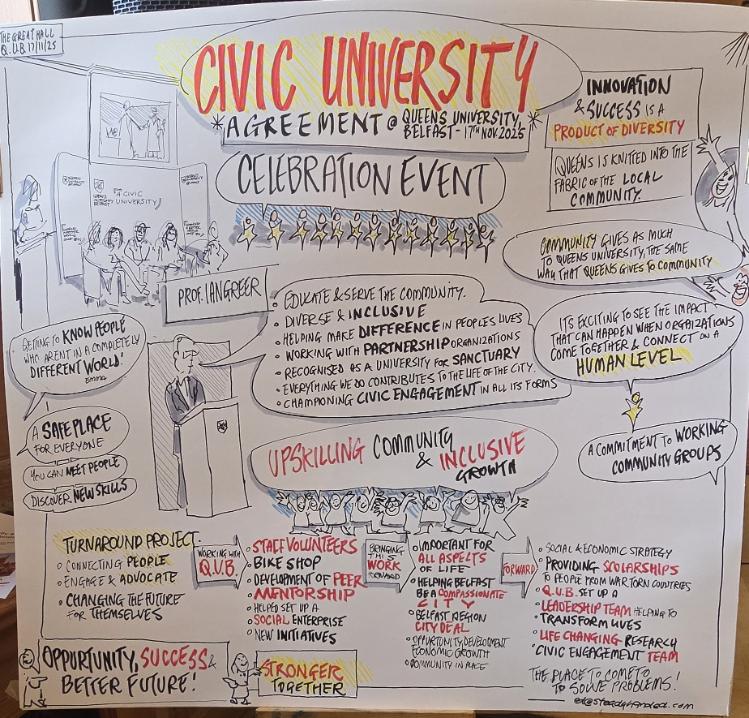 THE GREAT HALL
Q.U.B. 17/11/25
CIVIC UNIVERSITY
*AGREEMENT @ QUEENS UNIVERSITY,
BELFAST - 17TH NOV. 2025 *
CELEBRATION EVENT
INNOVATION
& SUCCESS IS A
PRODUCT OF DIVERSITY
QUEENS IS KNITTED INTO THE
FABRIC OF THE LOCAL
COMMUNITY.
WE
CIVIC
UNIVERSITY
COMMUNITY GIVES AS MUCH
TO QUEENS UNIVERSITY, THE SAME
WAY THAT QUEENS GIVES TO COMMUNITY
PROF. IAN GREER
• EDUCATE & SERVE THE COMMUNITY.
• DIVERSE & INCLUSIVE
• HELPING MAKE DIFFERENCE IN PEOPLES LIVES
• WORKING WITH PARTNERSHIP ORGANIZATIONS
• RECOGNISED AS A UNIVERSITY FOR SANCTUARY
• EVERYTHING WE DO CONTRIBUTES TO THE LIFE OF THE CITY.
• CHAMPIONING CIVIC ENGAGEMENT IN ALL ITS FORMS
ITS EXCITING TO SEE THE IMPACT
THAT CAN HAPPEN WHEN ORGANIZATIONS
COME TOGETHER & CONNECT ON A
HUMAN LEVEL
GETTING TO KNOW PEOPLE
WHO ARENT IN A COMPLETELY
DIFFERENT WORLD!
A SAFE PLACE
FOR EVERYONE
YOU CAN MEET PEOPLE
DISCOVER NEW SKILLS
A COMMITMENT TO WORKING
COMMUNITY GROUPS
UPSKILLING COMMUNITY
& INCLUSIVE
GROWTH
TURNAROUND PROJECT.
• CONNECTING PEOPLE
• ENGAGE & ADVOCATE
• CHANGING THE FUTURE
FOR THEMSELVES
WORKING WITH
Q.U.B.
• STAFF VOLUNTEERS
• BIKE SHOP
• DEVELOPMENT OF PEER
MENTORSHIP
• HELPED SET UP A
SOCIAL ENTERPRISE
• NEW INITIATIVES
BRINGING
THIS
WORK
FORWARD
• IMPORTANT FOR
ALL ASPECTS
OF LIFE
• HELPING BELFAST
BE A COMPASSIONATE
CITY
• BELFAST REGION
CITY DEAL
• OPPORTUNITY, DEVELOPMENT
ECONOMIC GROWTH
• COMMUNITY IN PLACE
FORWARD
• SOCIAL & ECONOMIC STRATEGY
• PROVIDING SCOLARSHIPS
TO PEOPLE FROM WAR TORN COUNTRIES
• Q.U.B. SET UP A
LEADERSHIP TEAM HELPING TO
TRANSFORM LIVES
• LIFE CHANGING RESEARCH
• CIVIC ENGAGEMENT TEAM
OPPORTUNITY, SUCCESS &
BETTER FUTURE!
STRONGER
TOGETHER
THE PLACE TO COME TO
TO SOLVE PROBLEMS!